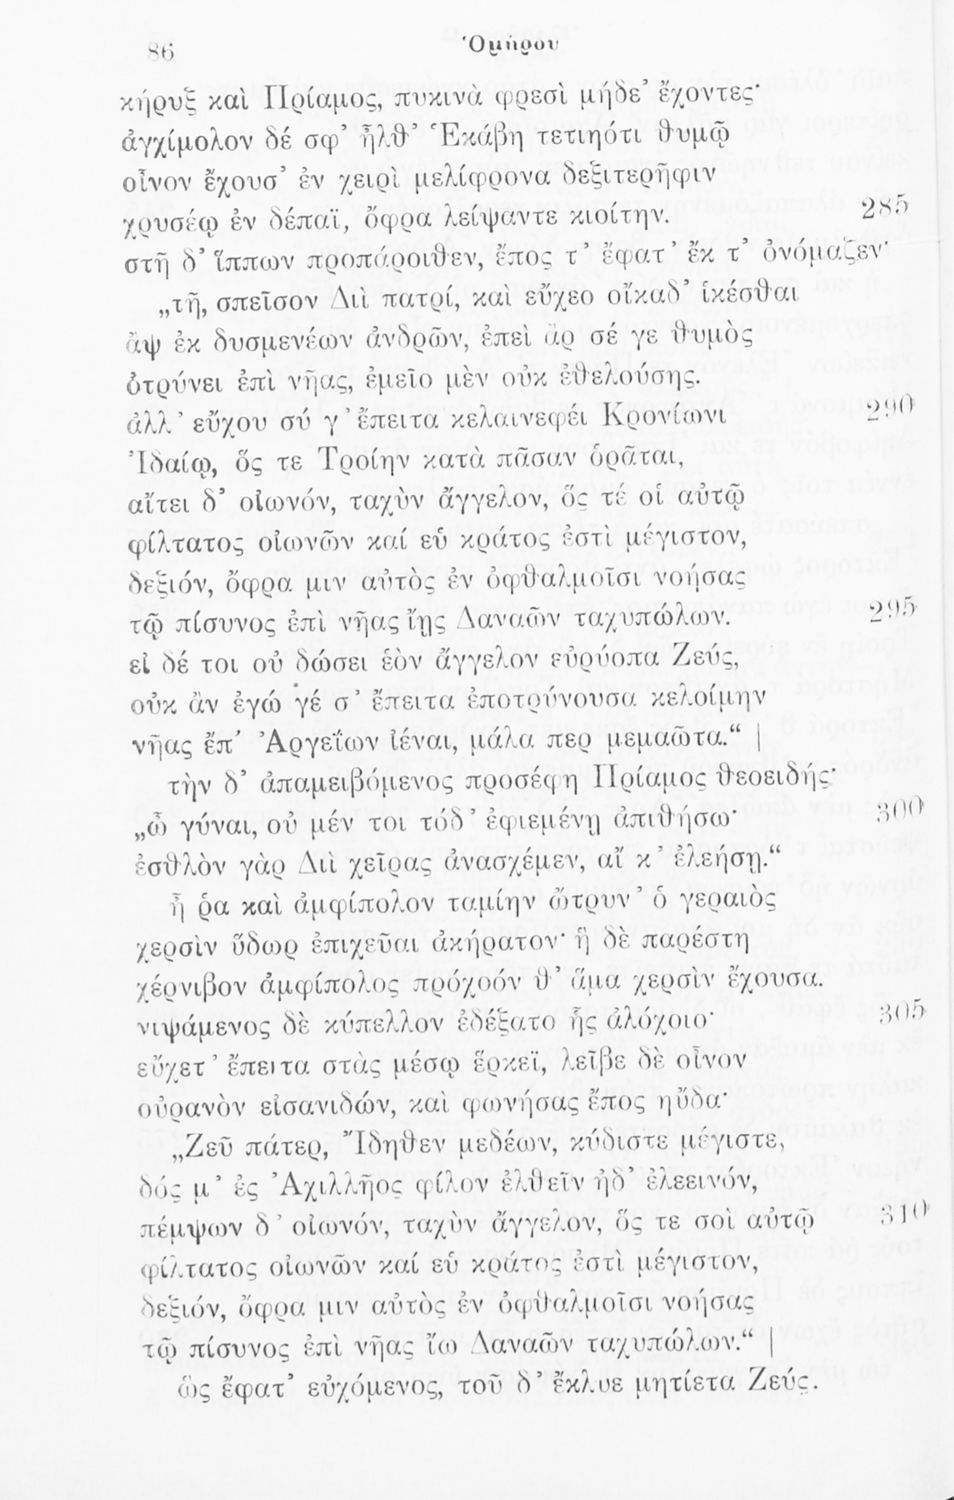 86
Ὁμήρου
κήρυξ καὶ Πρίαμος, πυκινὰ φρεσὶ μήδε᾽ ἔχοντες·
ἀγχίμολον δέ σφ᾽ ἦλθ᾽ Ἑκάβη τετιηότι θυμῷ
οἶνον ἔχουσ᾽ ἐν χειρὶ μελίφρονα δεξιτερῆφιν
χρυσέῳ ἐν δέπαϊ, ὄφρα λείψαντε κιοίτην. 285
στῆ δ᾽ ἵππων προπάροιθεν, ἔπος τ᾽ ἔφατ᾽ ἔκ τ᾽ ὀνόμαζεν·
„τῆ, σπεῖσον Διὶ πατρί, καὶ εὔχεο οἴκαδ᾽ ἱκέσθαι
ἂψ ἐκ δυσμενέων ἀνδρῶν, ἐπεὶ ἂρ σέ γε θυμὸς
ὀτρύνει ἐπὶ νῆας, ἐμεῖο μὲν οὐκ ἐθελούσης.
ἀλλ᾽ εὔχου σύ γ᾽ ἔπειτα κελαινεφέι Κρονίωνι 290
Ἰδαίῳ, ὅς τε Τροίην κατὰ πᾶσαν ὁρᾶται,
αἴτει δ᾽ οἰωνόν, ταχὺν ἄγγελον, ὅς τέ οἱ αὐτῷ
φίλτατος οἰωνῶν καί εὑ κράτος ἐστὶ μέγιστον,
δεξιόν, ὄφρα μιν αὐτὸς ἐν ὀφθαλμοῖσι νοήσας
τῷ πίσυνος ἐπὶ νῆας ἴῃς Δαναῶν ταχυπώλων. 295
εἰ δέ τοι οὐ δώσει ἑὸν ἄγγελον εὐρύοπα Ζεύς,
οὐκ ἂν ἐγώ γέ σ᾽ ἔπειτα ἐποτρύνουσα κελοίμην
νῆας ἔπ᾽ Ἀργεΐων ἰέναι, μάλα περ μεμαῶτα.“ |
τὴν δ᾽ ἀπαμειβόμενος προσέφη Πρίαμος θεοειδής·
„ὦ γύναι, οὐ μέν τοι τόδ᾽ ἐφιεμένῃ ἀπιθήσω· 300
ἐσθλὸν γὰρ Διὶ χεῖρας ἀνασχέμεν, αἴ κ᾽ ἐλεήσῃ.“
ἦ ῥα καὶ ἀμφίπολον ταμίην ὤτρυν᾽ ὁ γεραιὸς
χερσὶν ὕδωρ ἐπιχεῦαι ἀκήρατον· ἣ δὲ παρέστη
χέρνιβον ἀμφίπολος πρόχοόν θ᾽ ἅμα χερσὶν ἔχουσα.
νιψάμενος δὲ κύπελλον ἐδέξατο ἧς ἀλόχοιο· 305
εὔχετ᾽ ἔπειτα στὰς μέσῳ ἕρκεϊ, λεῖβε δὲ οἶνον
οὐρανὸν εἰσανιδών, καὶ φωνήσας ἔπος ηὔδα·
„Ζεῦ πάτερ, Ἴδηθεν μεδέων, κύδιστε μέγιστε,
δός μ᾽ ἐς Ἀχιλλῆος φίλον ἐλθεῖν ἠδ᾽ ἐλεεινόν,
πέμψων δ᾽ οἰωνόν, ταχὺν ἄγγελον, ὅς τε σοὶ αὐτῷ 310
φίλτατος οἰωνῶν καί εὑ κράτος ἐστὶ μέγιστον,
δεξιόν, ὄφρα μιν αὐτὸς ἐν ὀφθαλμοῖσι νοήσας
τῷ πίσυνος ἐπὶ νῆας ἴω Δαναῶν ταχυπώλων.“ |
ὣς ἔφατ᾽ εὐχόμενος, τοῦ δ᾽ ἔκλυε μητίετα Ζεύς.